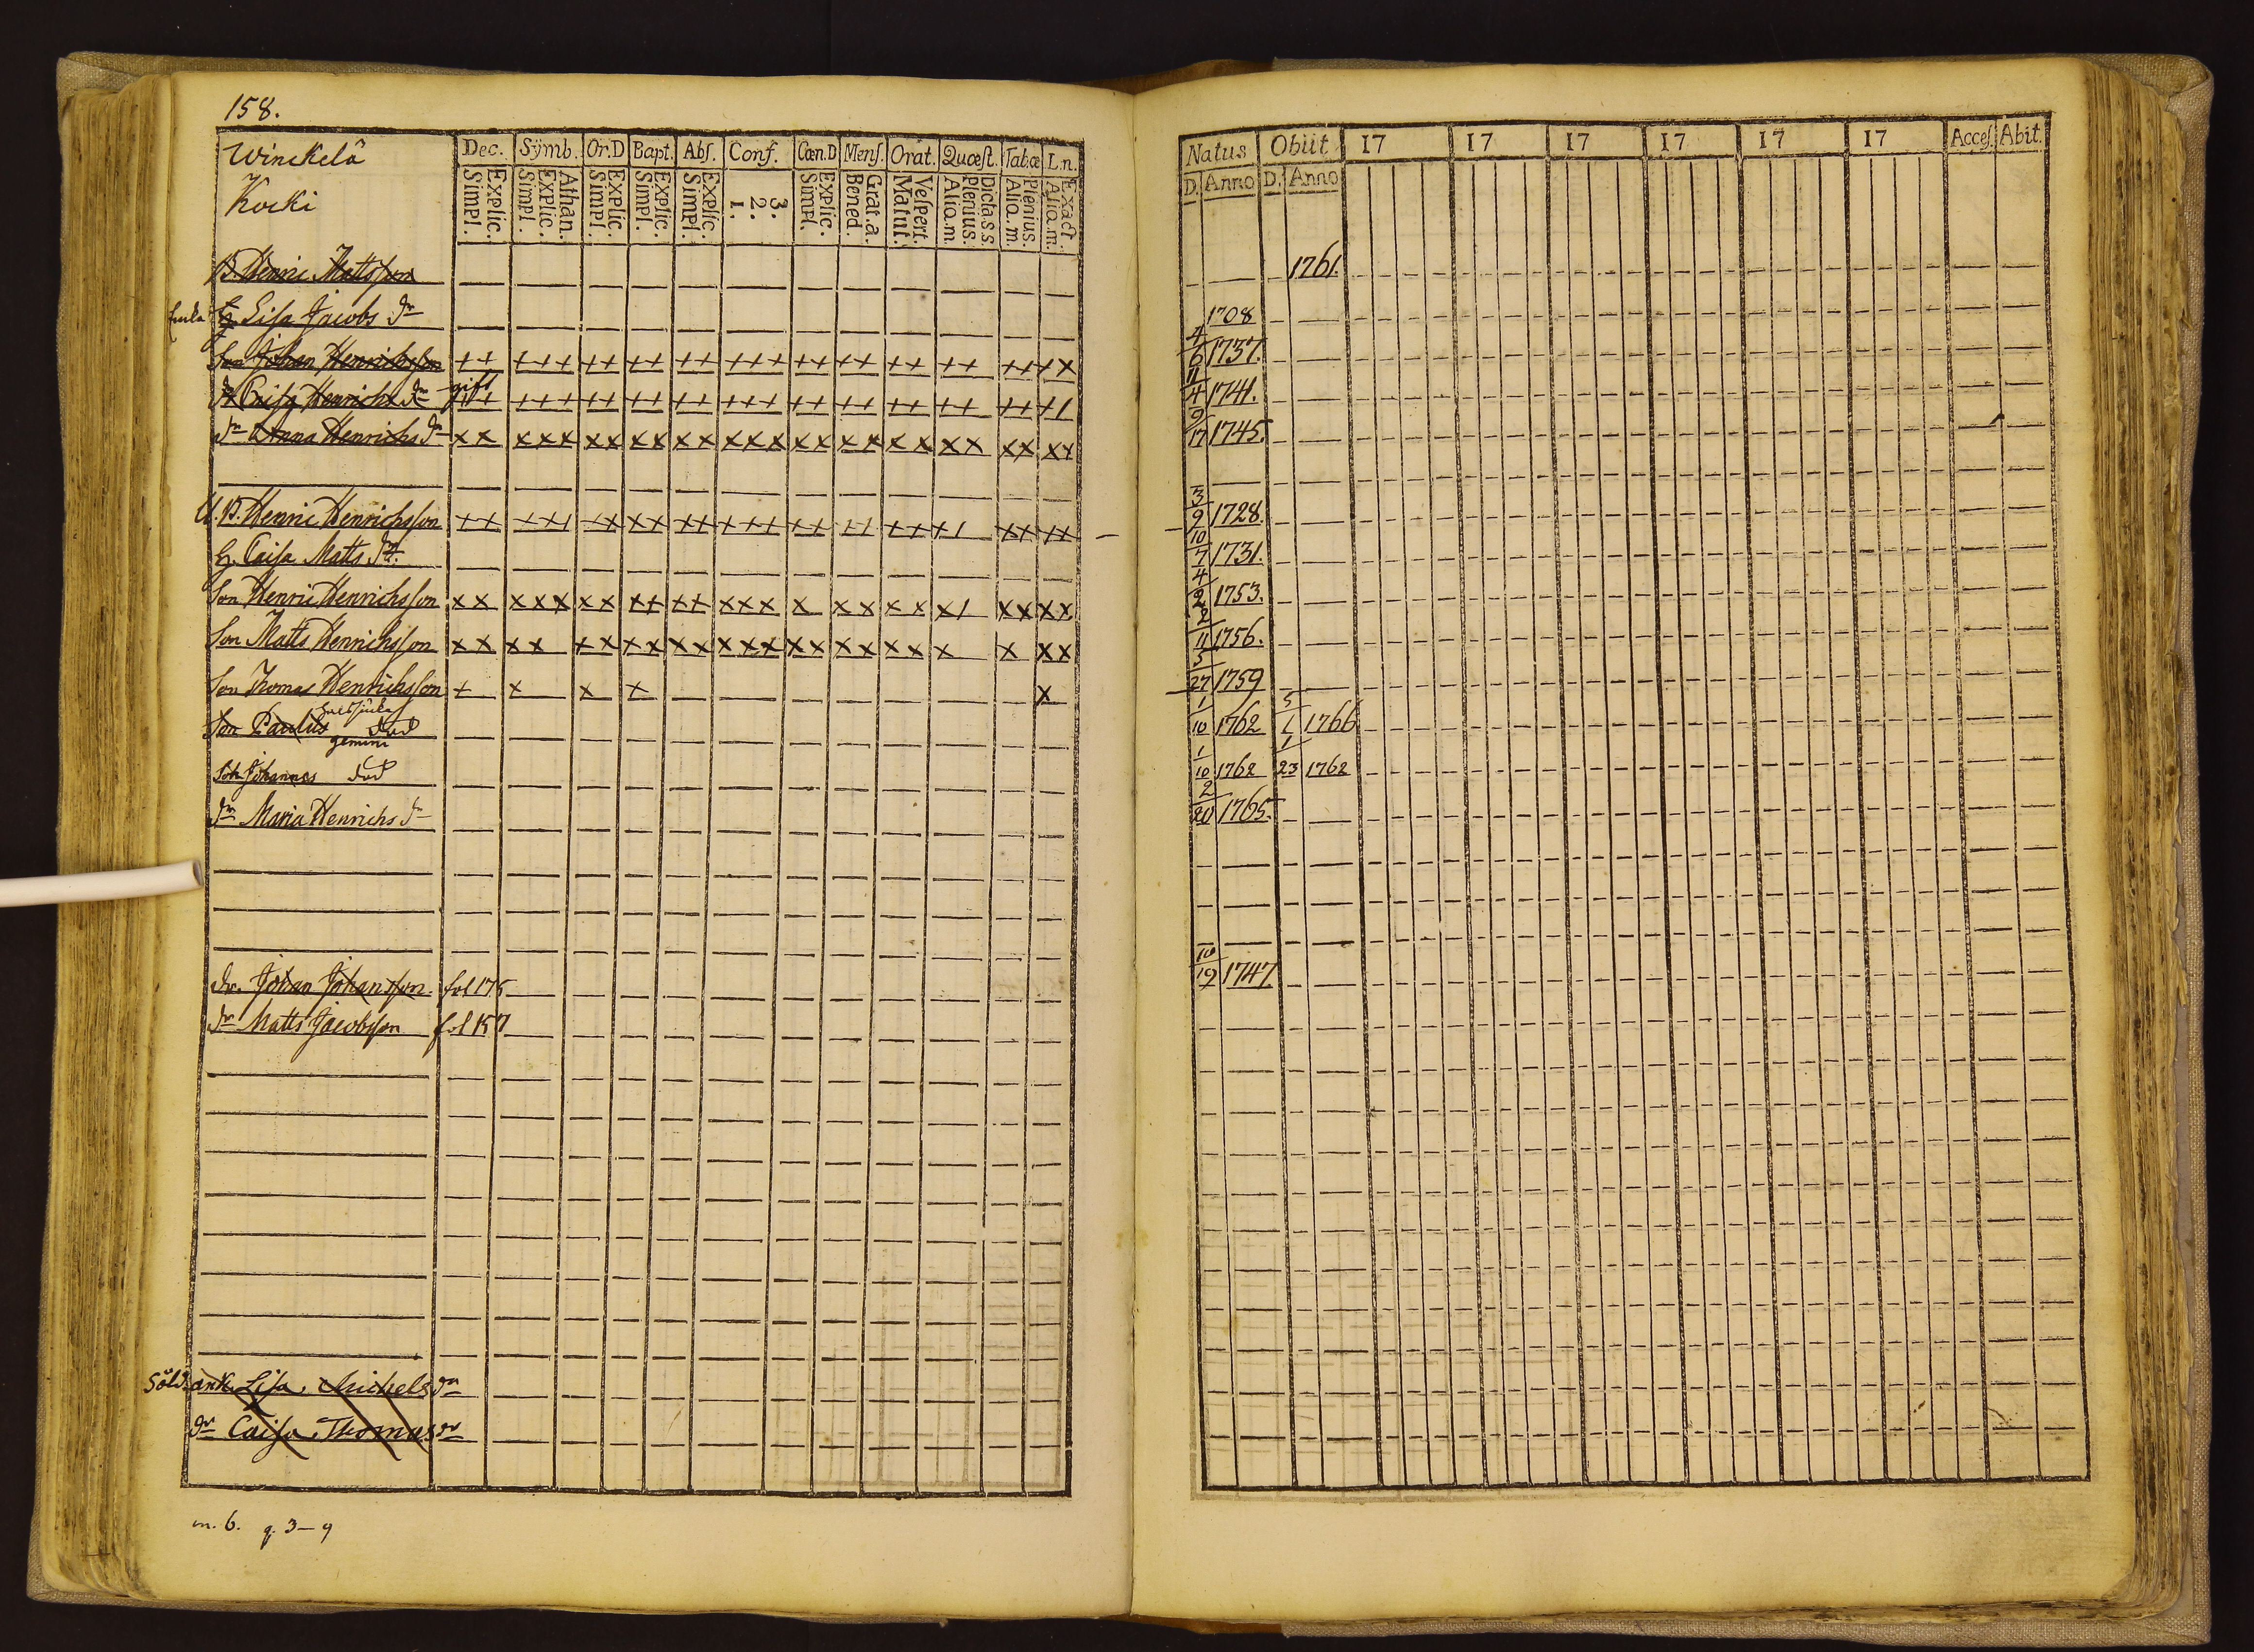 158.
Winckelä
Kocki
Dec. Symb. Or.D Bapt. Abs. Conf. Cœn.D Mens. Orat. Quæst. Tab.œ L.n.
Explic. Simpl. Athan. Explic. Simpl. Explic. Simpl. Explic. Simpl. Explic. Simpl. 3. 2. 1. Explic. Simpl. Grat.a. Bened. Vespert. Matut. Dicta.s.s. Plenius. Alia.m. Plenius. Alia.m. Exact. Alia.m.
B. Henric Mattsson
Enka H Lisa Jacobs dr
Son Johan Henrichsson ++ +++ ++ ++ ++ +++ ++ ++ ++ ++ ++ + x
dr Caisa Henrichs dr gift ++ +++ ++ ++ ++ +++ ++ ++ ++ ++ ++ + 1
dr Anna Henrichs dr x x x x x x x x x x x x x x x x x x x x x x x x x x
U.B. Henric Henrichsson
H. Caisa Matts dr.
Son Henric Henrichsson
Son Matts Henrichsson
Son Thomas Henrichsson + x x + x
Son Paulus död
gemini
Son Johannes död
dr Maria Henrichs dr
dr. Johan Johansson fol 175
dr Matts Jacobsson fol 157
Sold: änk. Lisa Michels dr
dr Caisa Thomas dr
m. 6. q. 3–9
Natus Obiit 17 17 17 17 17 17 Acces. Abit.
D. Anno D. Anno
1761.
1708
4/6 1737.
11/4 1741.
9/17 1745.
3/9 1728.
10/7 1731.
4/2 1753.
2/11 1756.
5/27 1759
1/10 1762 5/1 1766
1/10 1762 1/23 1762
2/20 1765.
10/19 1747.